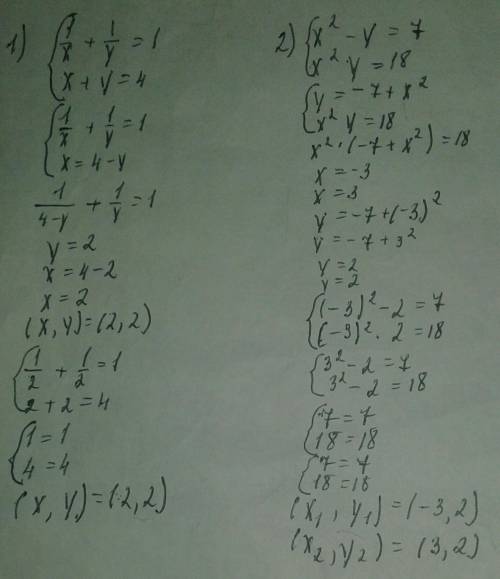 1) { 1/x + 1/y = 1
x + y = 4
{ 1/x + 1/y = 1
x = 4 - y
1/(4-y) + 1/y = 1
y = 2
x = 4 - 2
x = 2
(x, y) = (2, 2)
{ 1/2 + 1/2 = 1
2 + 2 = 4
{ 1 = 1
4 = 4
(x, y) = (2, 2)
2) { x² - y = 7
x² · y = 18
{ y = -7 + x²
x² y = 18
x² · (-7 + x²) = 18
x = -3
x = 3
y = -7 + (-3)²
y = -7 + 3²
y = 2
y = 2
{ (-3)² - 2 = 7
(-3)² · 2 = 18
{ 3² - 2 = 7
3² - 2 = 18
{ 7 = 7
18 = 18
{ 7 = 7
18 = 18
(x₁, y₁) = (-3, 2)
(x₂, y₂) = (3, 2)